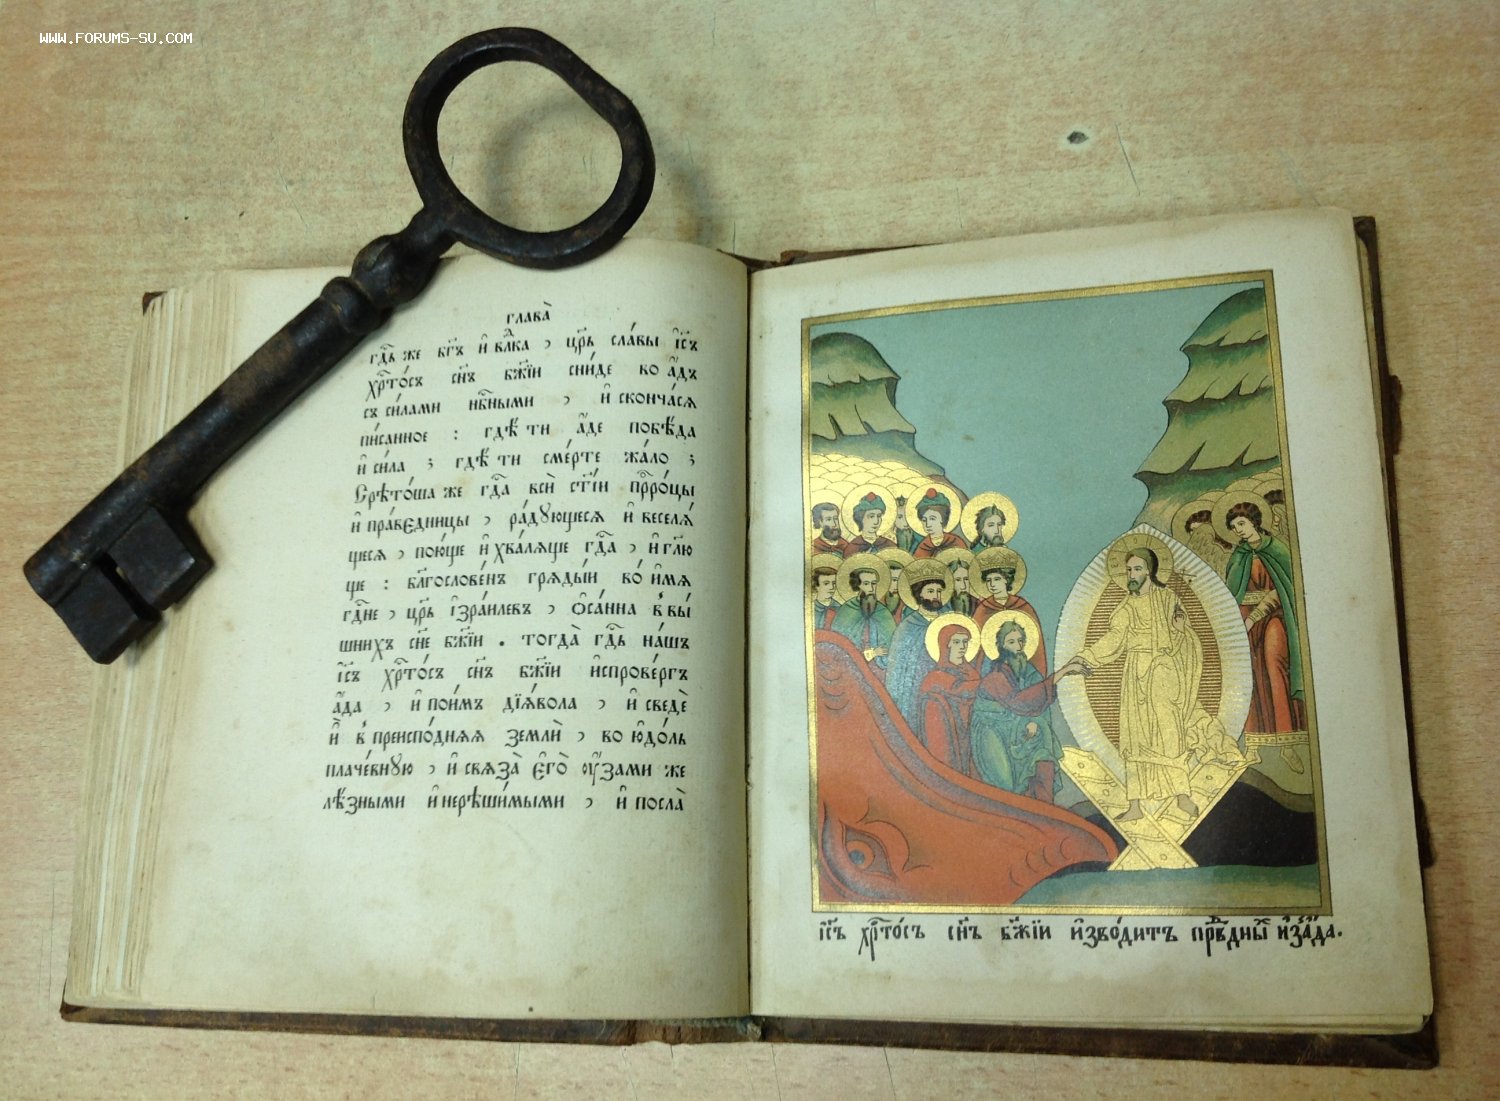 WWW.FORUMS-SU.COM
глава̀
гдⷭ҇ь же бг҃ъ и҆ влⷣка , цр҃ь сла́вы і҆с҃ъ
хрⷭ҇то́съ сн҃ъ бж҃їи сни́де во а҆́дъ
съ си́лами нбⷭ҇ными , и҆ сконча́сѧ
пи́санное : гдѣ́ ти а҆́де побѣ́да
и҆ си́ла ; гдѣ́ ти сме́рте жа́ло ;
Срѣ́тоша же гдⷭ҇а всѝ ст҃і́и прⷪ҇ро́цы
и҆ пра́вєдницы , ра́дꙋющесѧ и҆ веселѧ́
щесѧ , пою́ще и҆ хва́лѧще гдⷭ҇а , и҆ гл҃ю
ще : блгⷭ҇ослове́нъ грѧды́и во́ и҆мѧ
гдⷭ҇не , цр҃ь і҆зра́илевъ , ѻ҆са́нна в̾ вы́
шнихъ сн҃е бж҃їи . тогда̀ гдⷭ҇ь на́шъ
і҆с҃ъ хрⷭ҇то́съ сн҃ъ бж҃їи и҆спрове́ргъ
а҆́да , и҆ пои́мъ дїѧ́вола , и҆ сведѐ
и҆̀ в̾ преиспо́днѧѧ землѝ , во ю҆до́ль
плаче́внꙋю , и҆ свѧза̀ є҆го̀ ᲂу҆́зами же
лѣ́зными и҆ нерѣши́мыми , и҆ посла̀
і҆с҃ъ хрⷭ҇то́съ сн҃ъ бж҃їи и҆зво́дитъ првⷣны́ѧ и҆з̾ а҆́да.